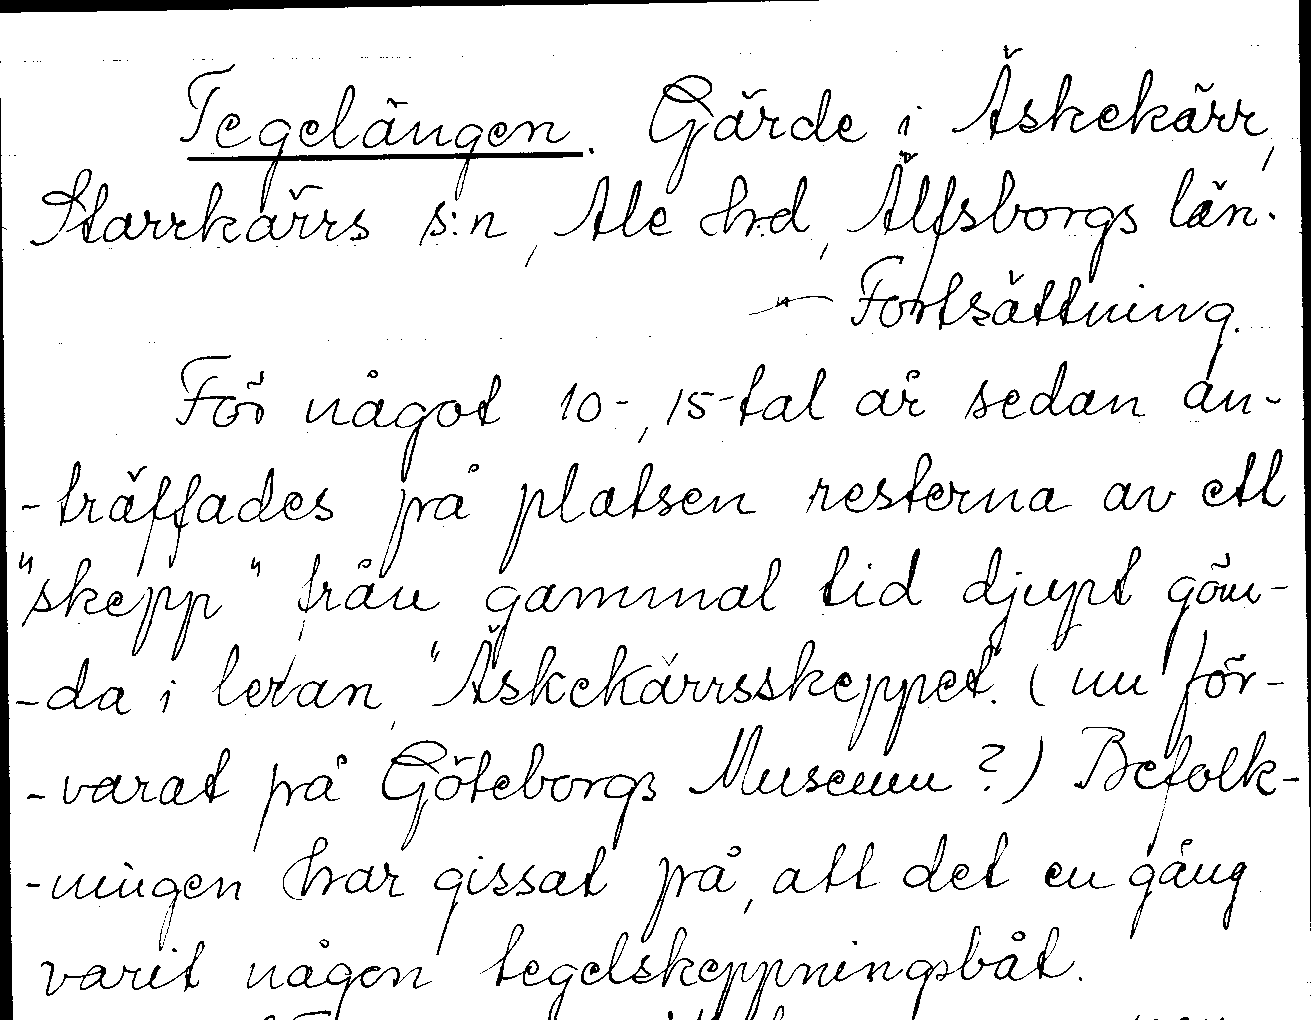 Tegelängen. Gärde i Äskekärr,
Starrkärrs s:n, Ale hrd, Älfsborgs län.
— Fortsättning.
För något 10-, 15-tal år sedan an-
-träffades på platsen resterna av ett
"skepp" från gammal tid djupt göm-
-da i leran, "Äskekärrsskeppet". (nu för-
-varat på Göteborgs Museum?) Befolk-
-ningen har gissat på, att det en gång
varit någon tegelskeppningsbåt.